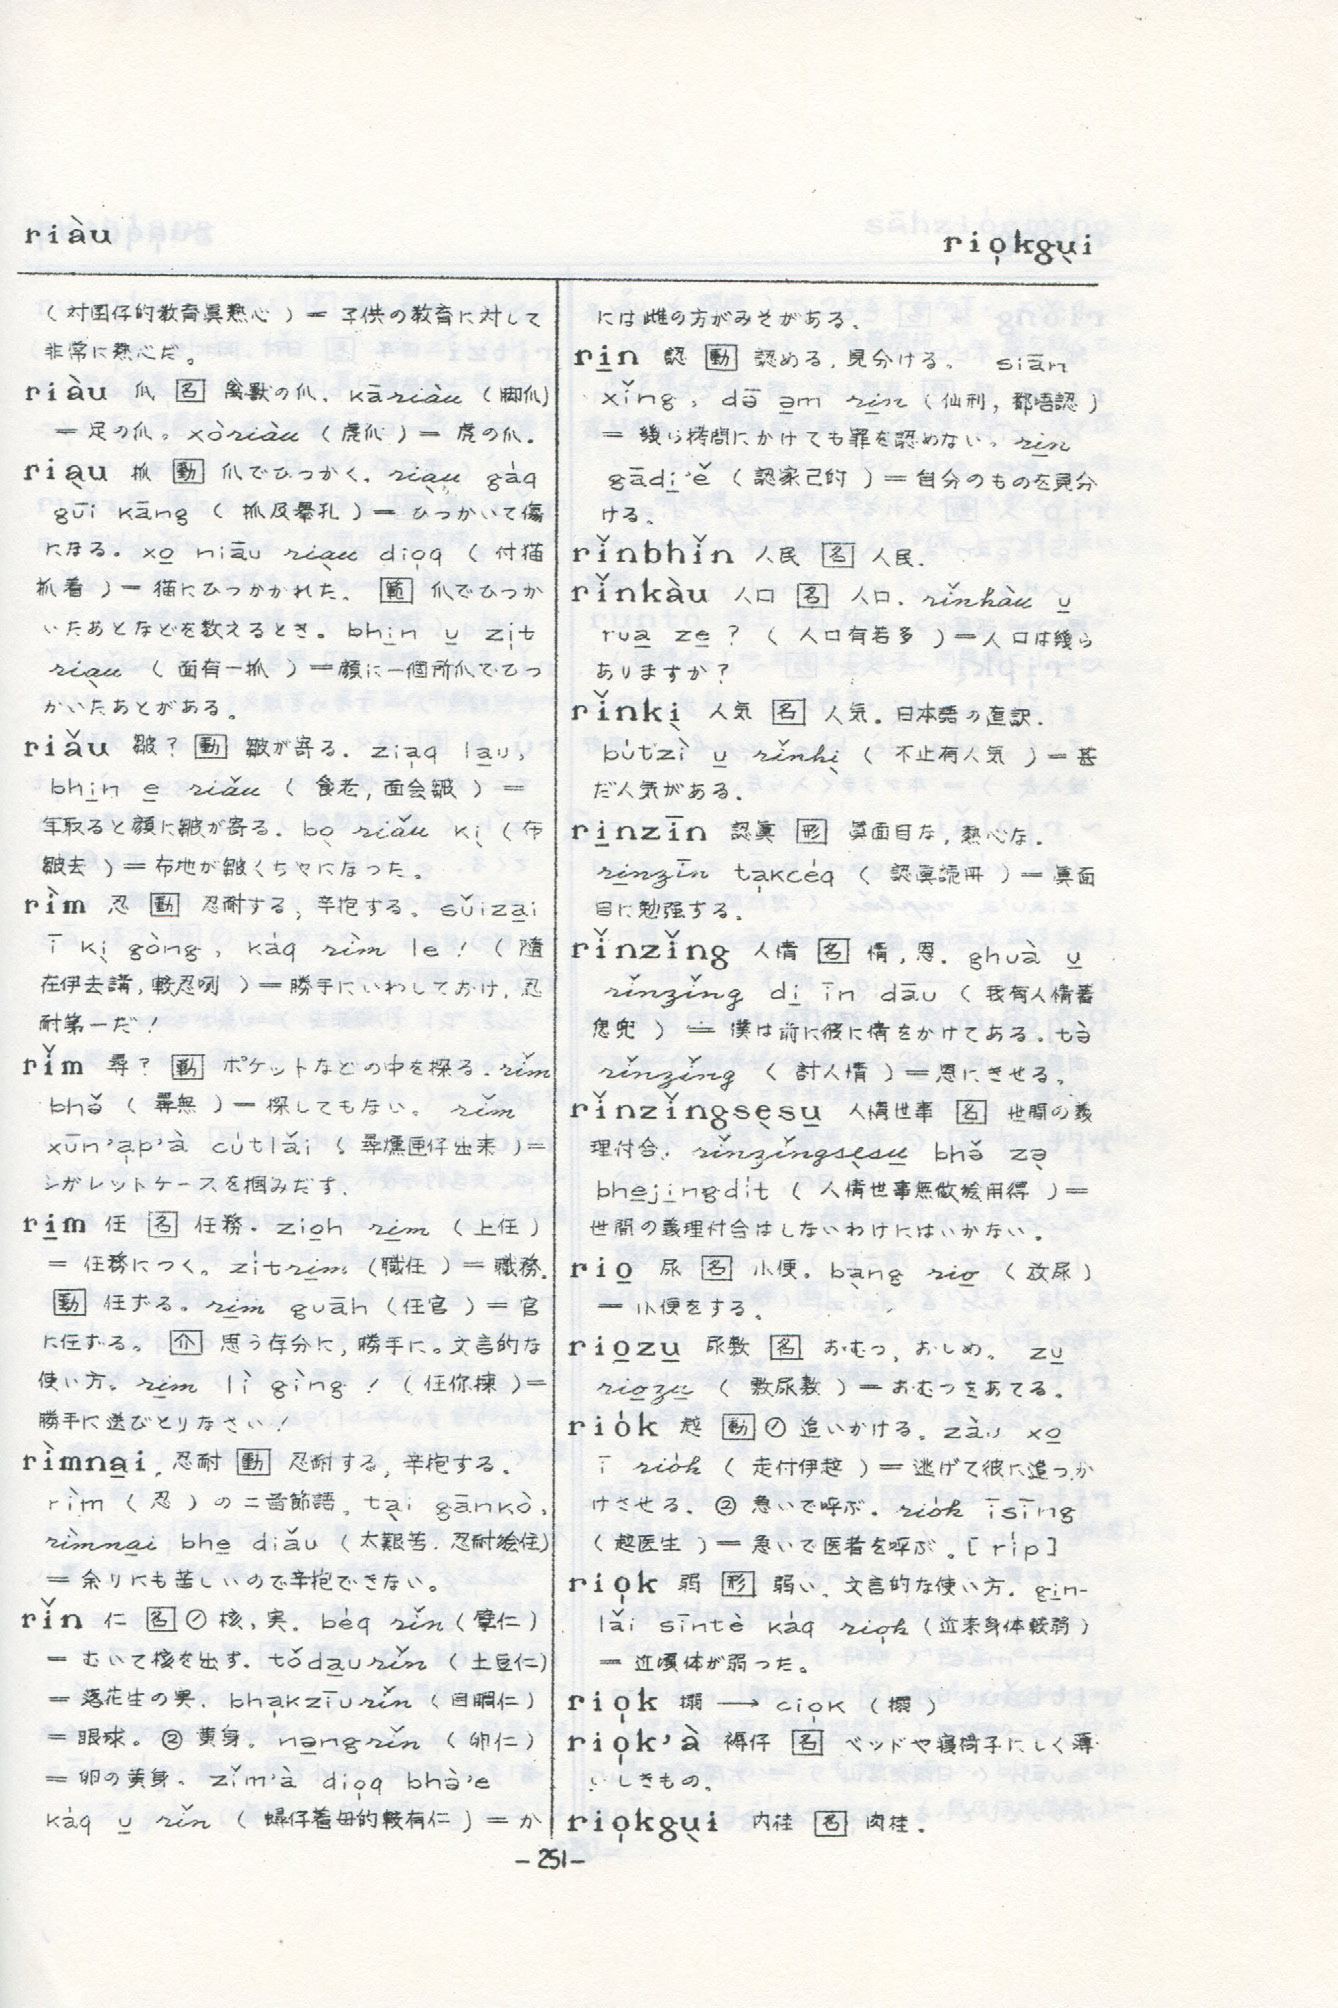 riàu
rio̍kgụi
(対囝仔的教育眞熱心)= 子供の教育に対して
非常に熱心だ。
riàu 爪 [名] 禽獣の爪. kāriàu (脚爪)
= 足の爪。xòriàu (虎爪) = 虎の爪.
riạu 抓 [動] 爪でひっかく. riạu gáq
gūi kāng ( 抓及擧孔 ) = ひっかいて傷
になる。xo̱ niāu riạu dio̍q ( 付猫
抓着 ) = 猫にひっかかれた。 [範] 爪でひっか
いたあとなどを数えるとき。bhi̱n u̱ zi̍t
riạu ( 面有一抓 ) = 顔に一個所爪でひっ
かいたあとがある。
riǎu 皺? [動] 皺が寄る. zia̍q la̱u,
bhi̱n e̱ riǎu ( 食老, 面会皺 ) =
年取ると顔に皺が寄る. bọ riǎu kị ( 布
皺去 ) = 布地が皺くちゃになった。
rìm 忍 [動] 忍耐する, 辛抱する。sǔiza̱i
ī kị gòng, káq rìm le! ( 隨
在伊去講, 較忍咧 ) = 勝手にいわしておけ, 忍
耐第一だ!
rǐm 尋? [動] ポケットなどの中を探る. rǐm
bhə̌ ( 尋無 ) = 探してもない。 rǐm
xūn'a̍p'à cútlǎi ( 尋燻匣仔出来 ) =
シガレットケースを掴みだす.
ri̱m 任 [名] 任務. zio̱h ri̱m ( 上任 )
= 任務につく。zítri̱m (職任) = 職務.
[動] 任ずる。ri̱m guāh (任官) = 官
に任ずる。 [介] 思う存分に, 勝手に。文言的な
使い方。ri̱m lì gìng! ( 任你揀 ) =
勝手に選びとりなさい!
rìmna̱i, 忍耐 [動] 忍耐する, 辛抱する.
rìm ( 忍 ) の二音節語. tại gānkò,
rìmna̱i bhe̱ diǎu ( 太艱苦. 忍耐繪住)
= 余りにも苦しいので辛抱できない。
rǐn 仁 [名] ① 核, 実. béq rǐn ( 擘仁 )
= むいて核を出す. tǒda̱urǐn ( 土豆仁)
= 落花生の果. bha̍kziūrǐn ( 目睭仁)
= 眼球。 ② 黄身. nə̱ngrǐn ( 卵仁 )
= 卵の黄身. zǐm'à dio̍q bhə̀'e
káq u̱ rǐn ( 蟳仔着母的較有仁 ) = か
には雌の方がみそがある.
ri̱n 認 [動] 認める, 見分ける。 siān
xǐng, də̄ ə̱m ri̱n ( 仙刑, 都唔認 )
= 幾ら拷問にかけても罪を認めない. ri̱n
gādi̱'ě ( 認家己的 ) = 自分のものを見分
ける.
rǐnbhǐn 人民 [名] 人民.
rǐnkàu 人口 [名] 人口. rǐnkàu u̱
rua̱ ze̱? ( 人口有若多 ) = 人口は幾ら
ありますか?
rǐnkị 人気 [名] 人気。日本語の直訳.
bútzì u̱ rǐnkị ( 不止有人気 ) = 甚
だ人気がある.
ri̱nzīn 認眞 [形] 眞面目な, 熱心な.
ri̱nzīn ta̍kcéq ( 認眞読冊 ) = 眞面
目に勉強する.
rǐnzǐng 人情 [名] 情, 恩. ghuà u̱
rǐnzǐng di̱ īn dāu ( 我有人情著
怹兜 ) = 僕は前に彼に情をかけてある. tə̀
rǐnzǐng ( 討人情 ) = 恩にきせる.
rǐnzǐngsẹsu̱ 人情世事 [名] 世間の義
理付合. rǐnzǐngsẹsu̱ bhə̌ zə̣
bhe̱ji̱ngdít ( 人情世事無做繪用得 ) =
世間の義理付合はしないわけにはいかない.
rio̱ 尿 [名] 小便. bạng rio̱ ( 放尿 )
= 小便をする.
rio̱zu̱ 尿敷 [名] おむつ, おしめ. zu̱
rio̱zu̱ ( 敷尿敷 ) = おむつをあてる.
riók 趒 [動] ① 追いかける. zàu xo̱
ī riók ( 走付伊趒 ) = 逃げて彼に追っか
けさせる. ② 急いで呼ぶ. riók īsīng
( 趒医生 ) = 急いで医者を呼ぶ. [ríp]
rio̍k 弱 [形] 弱い. 文言的な使い方. gi̱n-
lǎi sīntè káq rio̍k ( 近来身体較弱 )
= 近頃体が弱った。
rio̍k → cio̍k
rio̍k'à 褥仔 [名] ベッドや寝椅子にしく薄
いしきもの.
rio̍kgụi 肉桂 [名] 肉桂.
- 251 -